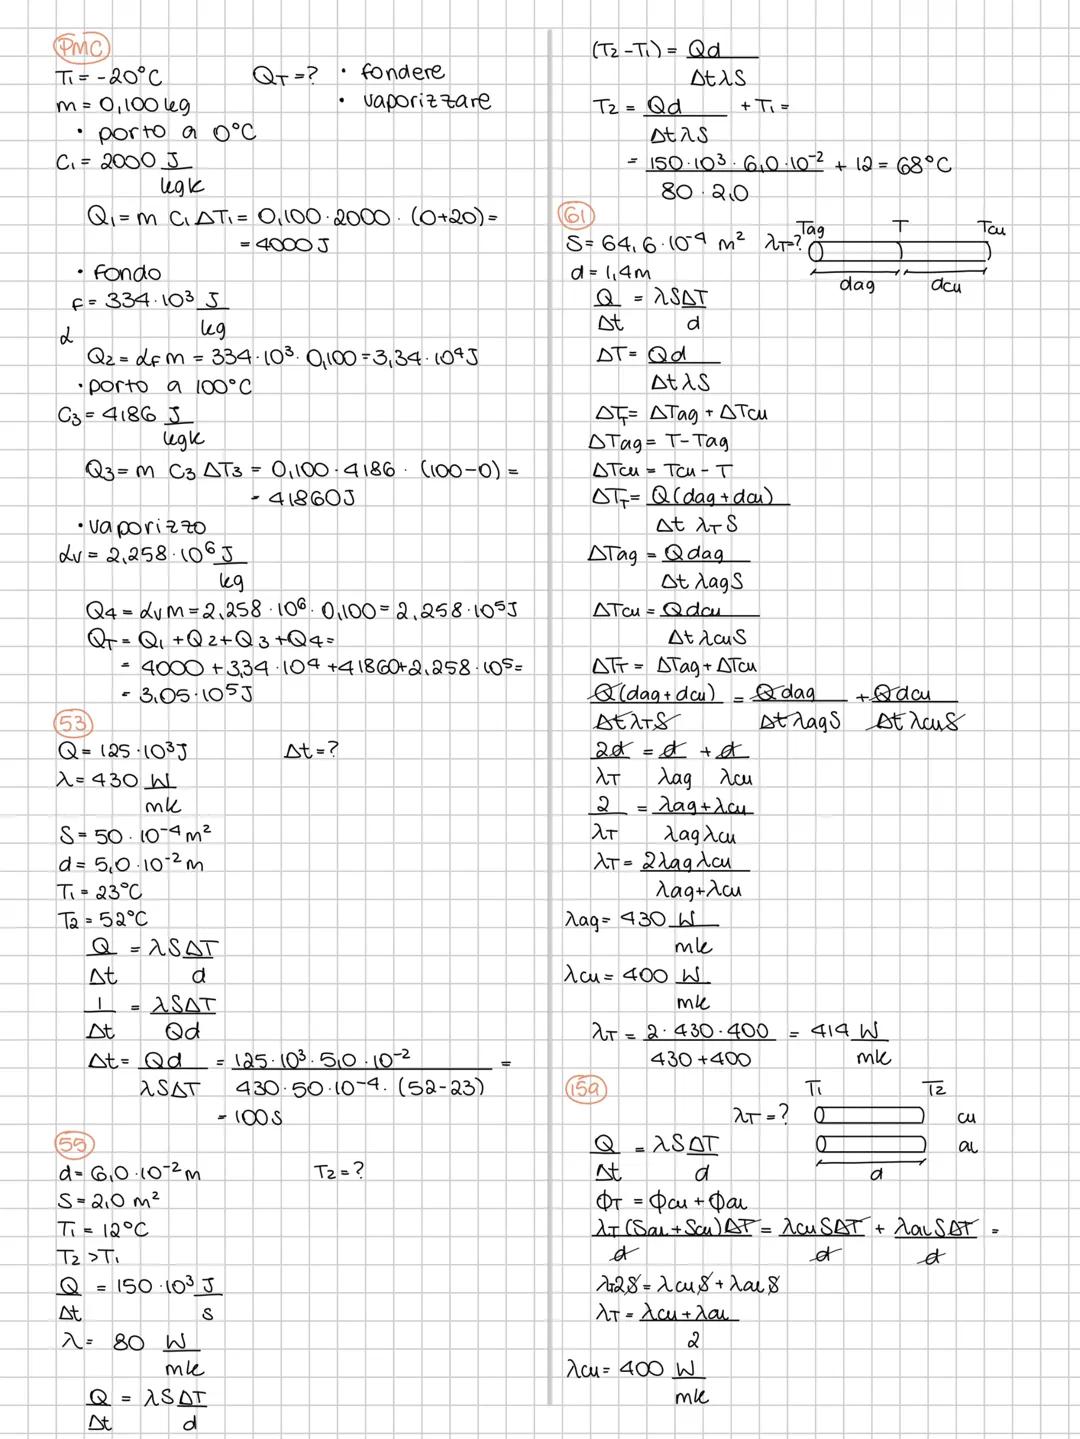 PMC
T₁ = -20°C QT = ? • fondere
m = 0,100 kg • vaporizzare
• porto a 0°C
C₁ = 2000 J
kgk
Q₁ = m C₁ ΔT₁ = 0,100 · 2000 · (0+20) =
= 4000 J
• fondo
F = 334·10³ J
kg
L
Q₂ = LF m = 334·10³ · 0,100 = 3,34·10⁴ J
• porto a 100°C
C₃ = 4186 J
kgk
Q₃ = m C₃ ΔT₃ = 0,100 · 4186 · (100-0) =
= 41860 J
• vaporizzo
Lv = 2,258·10⁶ J
kg
Q4 = Lv m = 2,258·10⁶ · 0,100 = 2,258·10⁵ J
QT = Q₁ + Q2 + Q3 + Q4 =
= 4000 + 3,34·10⁴ + 41860 + 2,258·10⁵ =
= 3,05·10⁵ J
53
Q = 125·10³ J Δt = ?
λ = 430 W
mk
S = 50·10⁻⁴ m²
d = 5,0·10⁻² m
T₁ = 23°C
T₂ = 52°C
Q = λSΔT
Δt d
1 = λSΔT
Δt Qd
Δt = Qd = 125·10³ · 5,0·10⁻² =
λSΔT 430·50·10⁻⁴·(52-23)
= 100 s
55
d = 6,0·10⁻² m T₂ = ?
S = 2,0 m²
T₁ = 12°C
T₂ > T₁
Q = 150·10³ J
Δt s
λ = 80 W
mk
Q = λSΔT
Δt d
(T₂ - T₁) = Qd
ΔtλS
T₂ = Qd + T₁ =
ΔtλS
= 150·10³ · 6,0·10⁻² + 12 = 68°C
80 · 2,0
61
Tag T Tcu
S = 64,6·10⁻⁴ m² λT = ?
d = 1,4 m
dag dcu
Q = λSΔT
Δt d
ΔT = Qd
ΔtλS
ΔTT = ΔTag + ΔTcu
ΔTag = T - Tag
ΔTcu = Tcu - T
ΔTT = Q(dag + dcu)
Δt λT S
ΔTag = Q dag
Δt λag S
ΔTcu = Q dcu
Δt λcu S
ΔTT = ΔTag + ΔTcu
Q(dag + dcu) = Q dag + Q dcu
Δt λT S Δt λag S Δt λcu S
2d = d + d
λT λag λcu
2 = λag + λcu
λT λag λcu
λT = 2λag λcu
λag + λcu
λag = 430 W
mk
λcu = 400 W
mk
λT = 2 · 430 · 400 = 414 W
430 + 400 mk
159
T₁ T₂
λT = ? cu
al
d
Q = λSΔT
Δt d
ΦT = Φcu + Φal
λT (Sal + Scu) ΔT = λcu SΔT + λal SΔT =
d d d
λT2S = λcu S + λal S
λT = λcu + λal
2
λcu = 400 W
mk